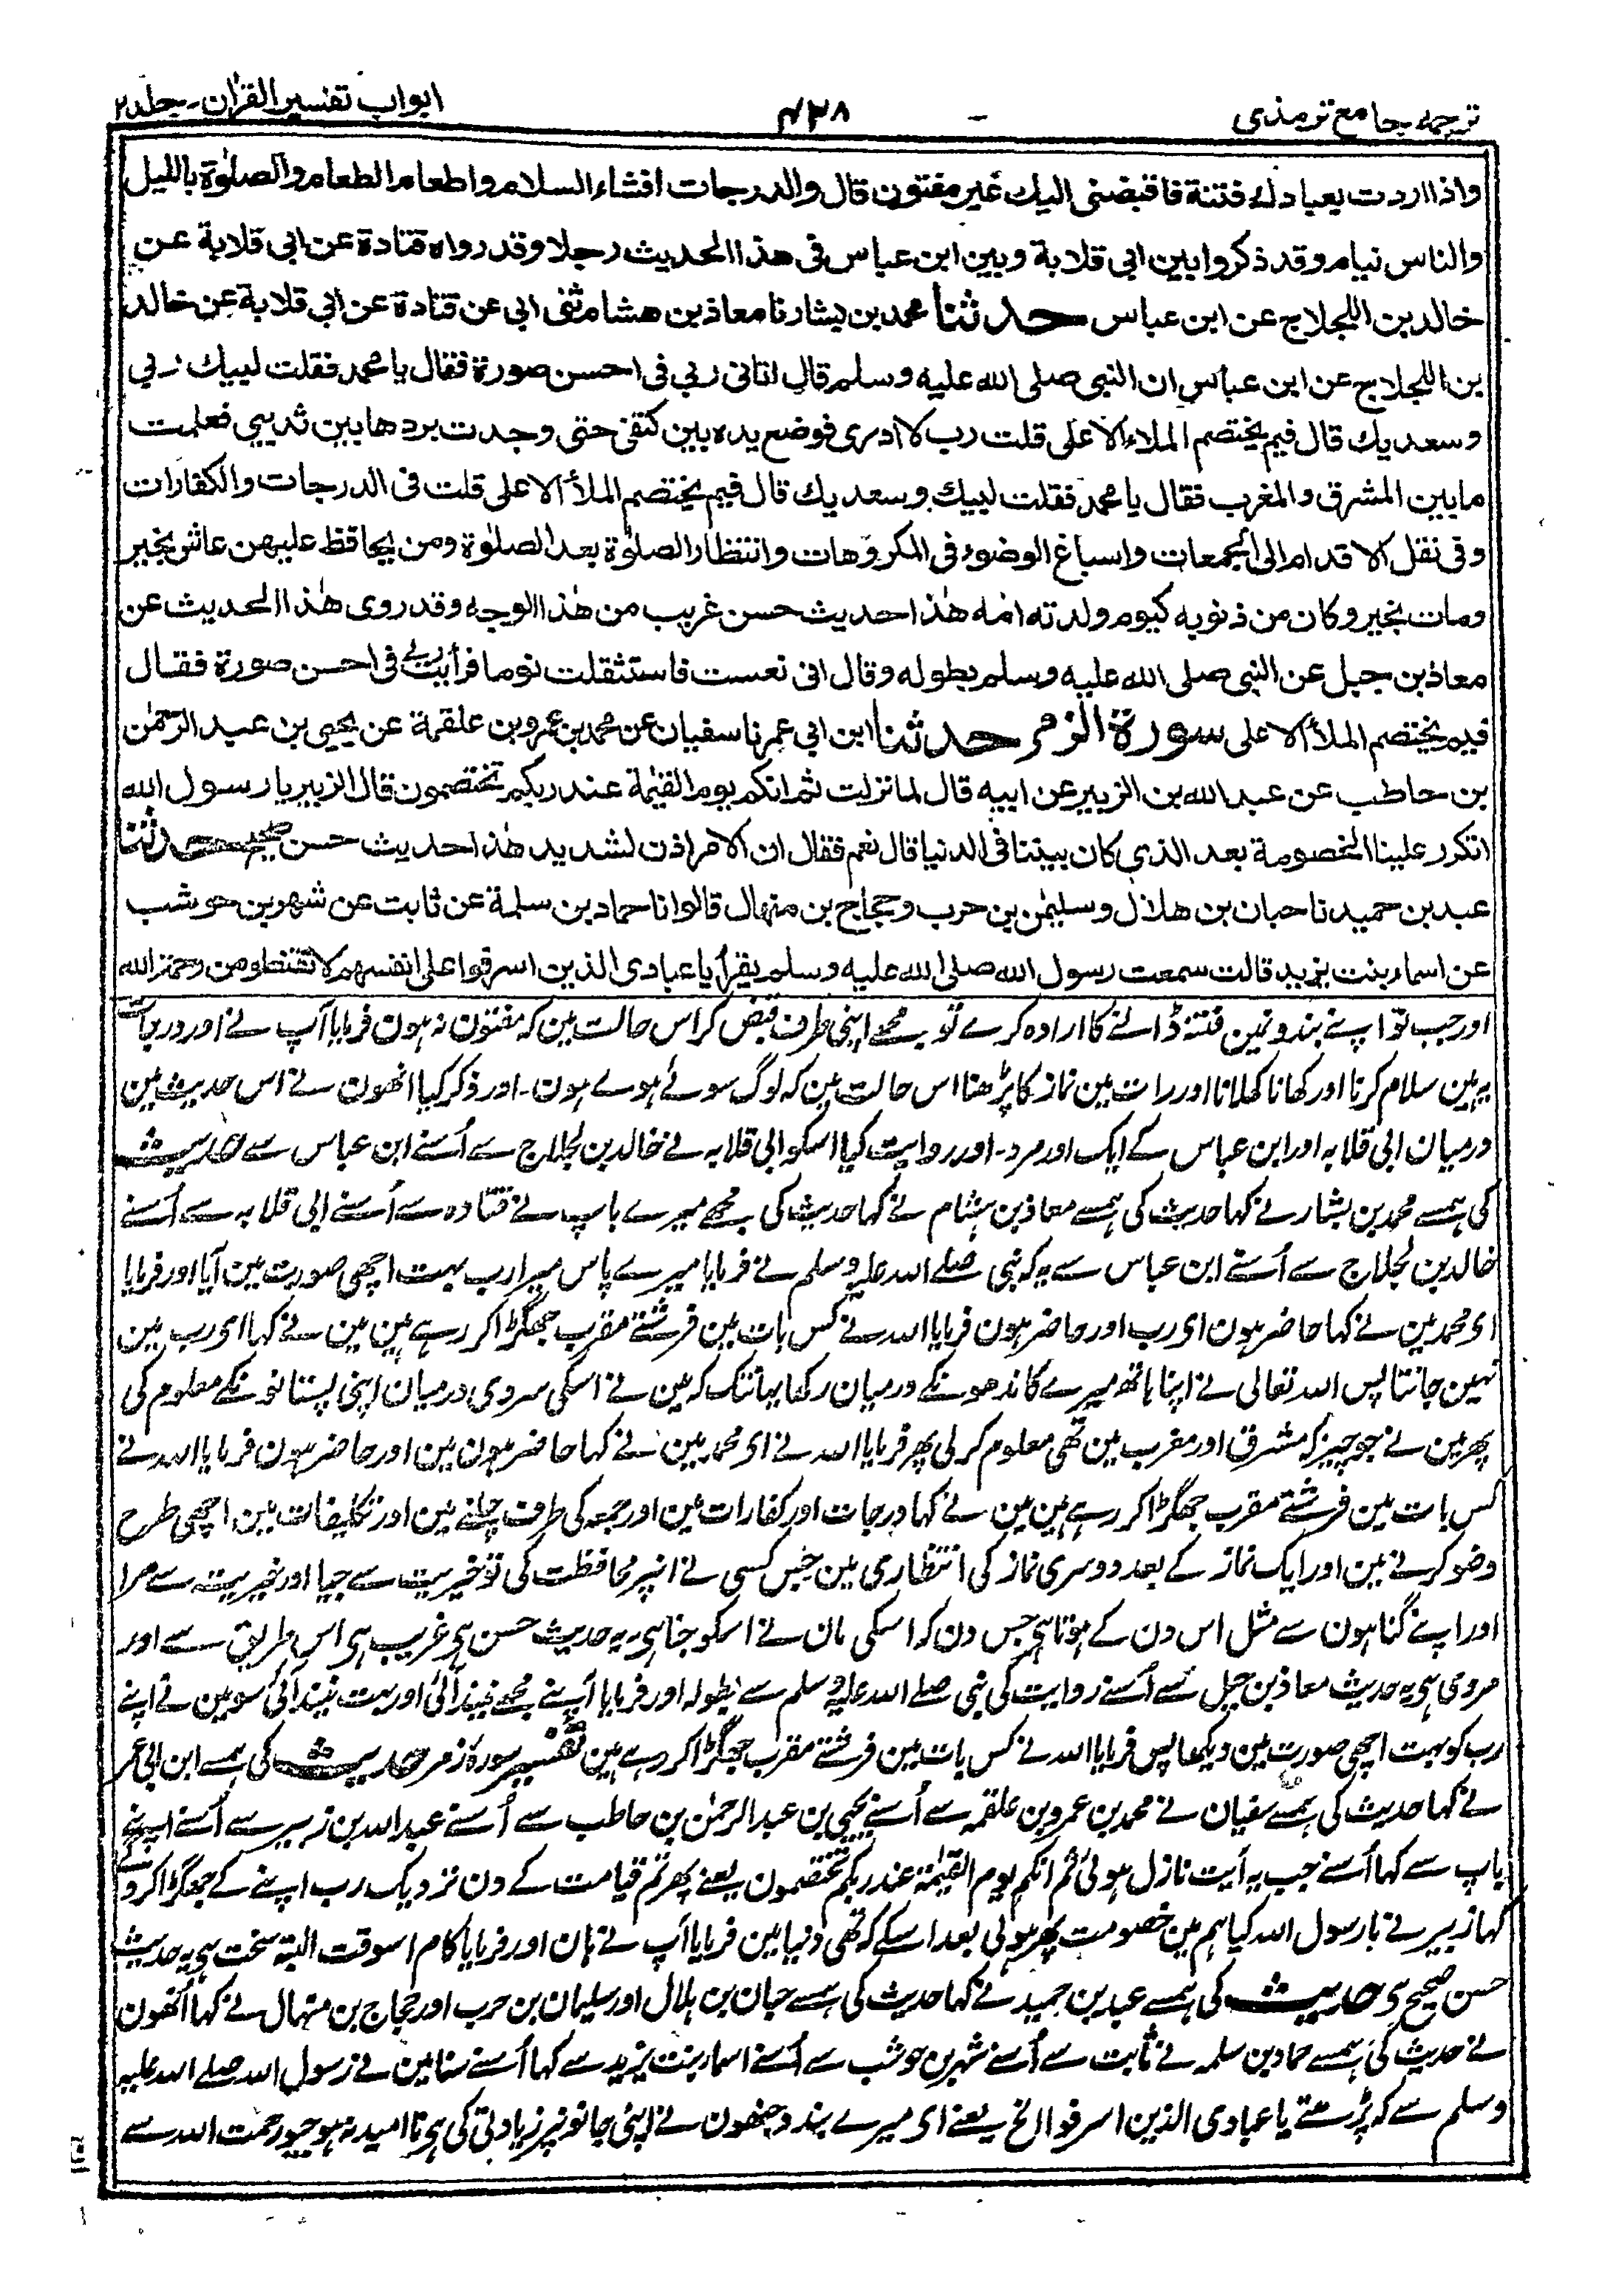 ترجمہ جامع ترمذی
۴۳۸
ابواب تفسیر القرآن - جلد ۲
واذا اردت بعبادك فتنة فاقبضنى اليك غير مفتون قال والدرجات افشاء السلام واطعام الطعام والصلوٰة بالليل
والناس نيام وقد ذكروا بين ابى قلابة وبين ابن عباس فى هذا الحديث رجلا وقد رواه قتادة عن ابى قلابة عن
خالد بن اللجلاج عن ابن عباس حدثنا محمد بن بشار نا معاذ بن هشام ثنى ابى عن قتادة عن ابى قلابة عن خالد
بن اللجلاج عن ابن عباس ان النبى صلى الله عليه وسلم قال اتانى ربى فى احسن صورة فقال يا محمد فقلت لبيك ربي
وسعديك قال فيم يختصم الملاء الاعلى قلت رب لا ادرى فوضع يده بين كتفى حتى وجدت بردها بين ثديي فعلمت
ما بين المشرق والمغرب فقال يا محمد فقلت لبيك وسعديك قال فيم يختصم الملأ الاعلى قلت فى الدرجات والكفارات
وفى نقل الاقدام الى الجمعات واسباغ الوضوء فى المكروهات وانتظار الصلوٰة بعد الصلوٰة ومن يحافظ عليهن عاش بخير
ومات بخير وكان من ذنوبه كيوم ولدته امه هٰذا حديث حسن غريب من هٰذا الوجه وقد روى هٰذا الحديث عن
معاذ بن جبل عن النبى صلى الله عليه وسلم بطوله وقال انى نعست فاستثقلت نوما فرأيت ربى فى احسن صورة فقال
فيم يختصم الملأ الاعلى سورة الزمر حدثنا ابن ابي عمر نا سفيان عن محمد بن عمرو بن علقمة عن يحيى بن عبد الرحمٰن
بن حاطب عن عبد الله بن الزبير عن ابيه قال لما نزلت ثم انكم يوم القيٰمة عند ربكم تختصمون قال الزبير يا رسول الله
اتكرر علينا الخصومة بعد الذى كان بيننا فى الدنيا قال نعم فقال ان الامر اذن لشديد هٰذا حديث حسن صحيح حدثنا
عبد بن حميد نا حبان بن هلال وسليمٰن بن حرب وحجاج بن منهال قالوا نا حماد بن سلمة عن ثابت عن شهر بن حوشب
عن اسماء بنت يزيد قالت سمعت رسول الله صلى الله عليه وسلم يقرأ يا عبادى الذين اسرفوا على انفسهم لا تقنطوا من رحمة الله
اور جب تو اپنے بندونمین فتنہ ڈالنے کا ارادہ کرے تو مجھے اپنی طرف قبض کر اس حالت مین کہ مفتون نہ ہون فرمایا آپ نے اور درجات
یہ ہین سلام کرنا اور کھانا کھلانا اور رات مین نماز کا پڑھنا اس حالت مین کہ لوگ سوئے ہوے ہون۔ اور ذکر کیا انھون نے اس حدیث مین
درمیان ابی قلابہ اور ابن عباس کے ایک اور مرد۔ اور روایت کیا اسکو ابی قلابہ نے خالد بن لجلاج سے اُسنے ابن عباس سے حدیث
کی ہمسے محمد بن بشار نے کہا حدیث کی ہمسے معاذ بن ہشام نے کہا حدیث کی مجھے میرے باپ نے قتادہ سے اُسنے ابی قلابہ سے اُسنے
خالد بن لجلاج سے اُسنے ابن عباس سے یہ کہ نبی صلے اللہ علیہ وسلم نے فرمایا میرے پاس میرا رب بہت اچھی صورت مین آیا اور فرمایا
ای محمد مین نے کہا حاضر ہون ای رب اور حاضر ہون فرمایا اللہ نے کس بات مین فرشتے مقرب جھگڑا کر رہے ہین مین نے کہا ای رب مین
نہین جانتا پس اللہ تعالی نے اپنا ہاتھ میرے کاندھونکے درمیان رکھا یہانتک کہ مین نے اسکی سردی درمیان اپنی پستانونکے معلوم کی
پھر مین نے جو چیز کہ مشرق اور مغرب مین تھی معلوم کر لی پھر فرمایا اللہ نے ای محمد مین نے کہا حاضر ہون مین اور حاضر ہون فرمایا اللہ نے
کس بات مین فرشتے مقرب جھگڑا کر رہے ہین مین نے کہا درجات اور کفارات مین اور جمعہ کی طرف چلنے مین اور تکلیفات مین اچھی طرح
وضو کرنے مین اور ایک نماز کے بعد دوسری نماز کی انتظاری مین جس کسی نے انپر محافظت کی تو خیریت سے جیا اور خیریت سے مرا
اور اپنے گناہون سے مثل اس دن کے ہوتا ہی جس دن کہ اسکی مان نے اسکو جنا ہی یہ حدیث حسن ہی غریب ہی اس طریق سے اور
مروی ہی یہ حدیث معاذ بن جبل سے اُسنے روایت کی نبی صلے اللہ علیہ وسلم سے بطولہ اور فرمایا آپنے مجھے نیند آئی اور بہت نیند آئی سو مین نے اپنے
رب کو بہت اچھی صورت مین دیکھا پس فرمایا اللہ نے کس بات مین فرشتے مقرب جھگڑا کر رہے ہین تفسیر سورۂ زمر حدیث کی ہمسے ابن ابی عمر
نے کہا حدیث کی ہمسے سفیان نے محمد بن عمرو بن علقمہ سے اُسنے یحیی بن عبد الرحمٰن بن حاطب سے اُسنے عبد اللہ بن زبیر سے اُسنے اپنے
باپ سے کہا اُسنے جب یہ آیت نازل ہوئی ثم انکم یوم القیٰمۃ عند ربکم تختصمون یعنے پھر تم قیامت کے دن نزدیک رب اپنے کے جھگڑا کروگے
کہا زبیر نے یا رسول اللہ کیا ہم مین خصومت پھر ہو لی بعد اسکے کہ تھی دنیا مین فرمایا آپ نے ہان اور فرمایا کام اسوقت البتہ سخت ہی یہ حدیث
حسن صحیح ہی حدیث کی ہمسے عبد بن حمید نے کہا حدیث کی ہمسے حبان بن ہلال اور سلیمان بن حرب اور حجاج بن منہال نے کہا اُنھون
نے حدیث کی ہمسے حماد بن سلمہ نے ثابت سے اُسنے شہر بن حوشب سے اُسنے اسماء بنت یزید سے کہا اُسنے سنا مین نے رسول اللہ صلے اللہ علیہ
وسلم سے کہ پڑھتے یا عبادی الذین اسرفوا الخ یعنے ای میرے بندو جنھون نے اپنی جانونپر زیادتی کی ہی نا امید نہ ہوجیو رحمت اللہ سے